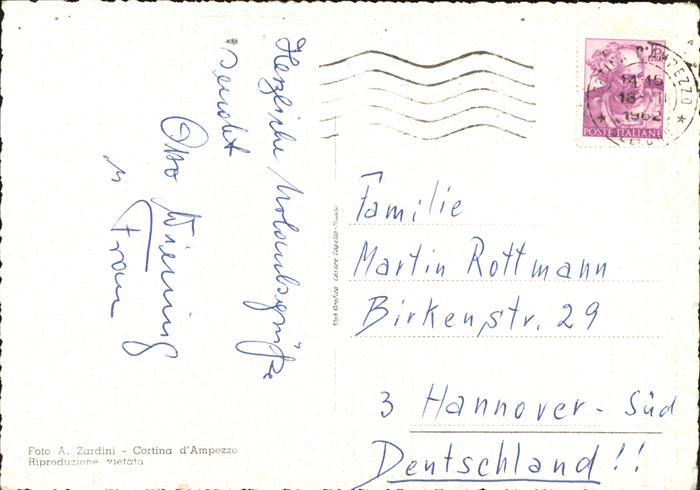 Herzliche Urlaubsgrüße
sendet
Otto
u Frau
POSTE ITALIANE
14 16
18
1962
Familie
Martin Rottmann
Birkenstr. 29
3 Hannover - Süd
Deutschland!!
Foto A. Zardini - Cortina d'Ampezzo
Riproduzione vietata